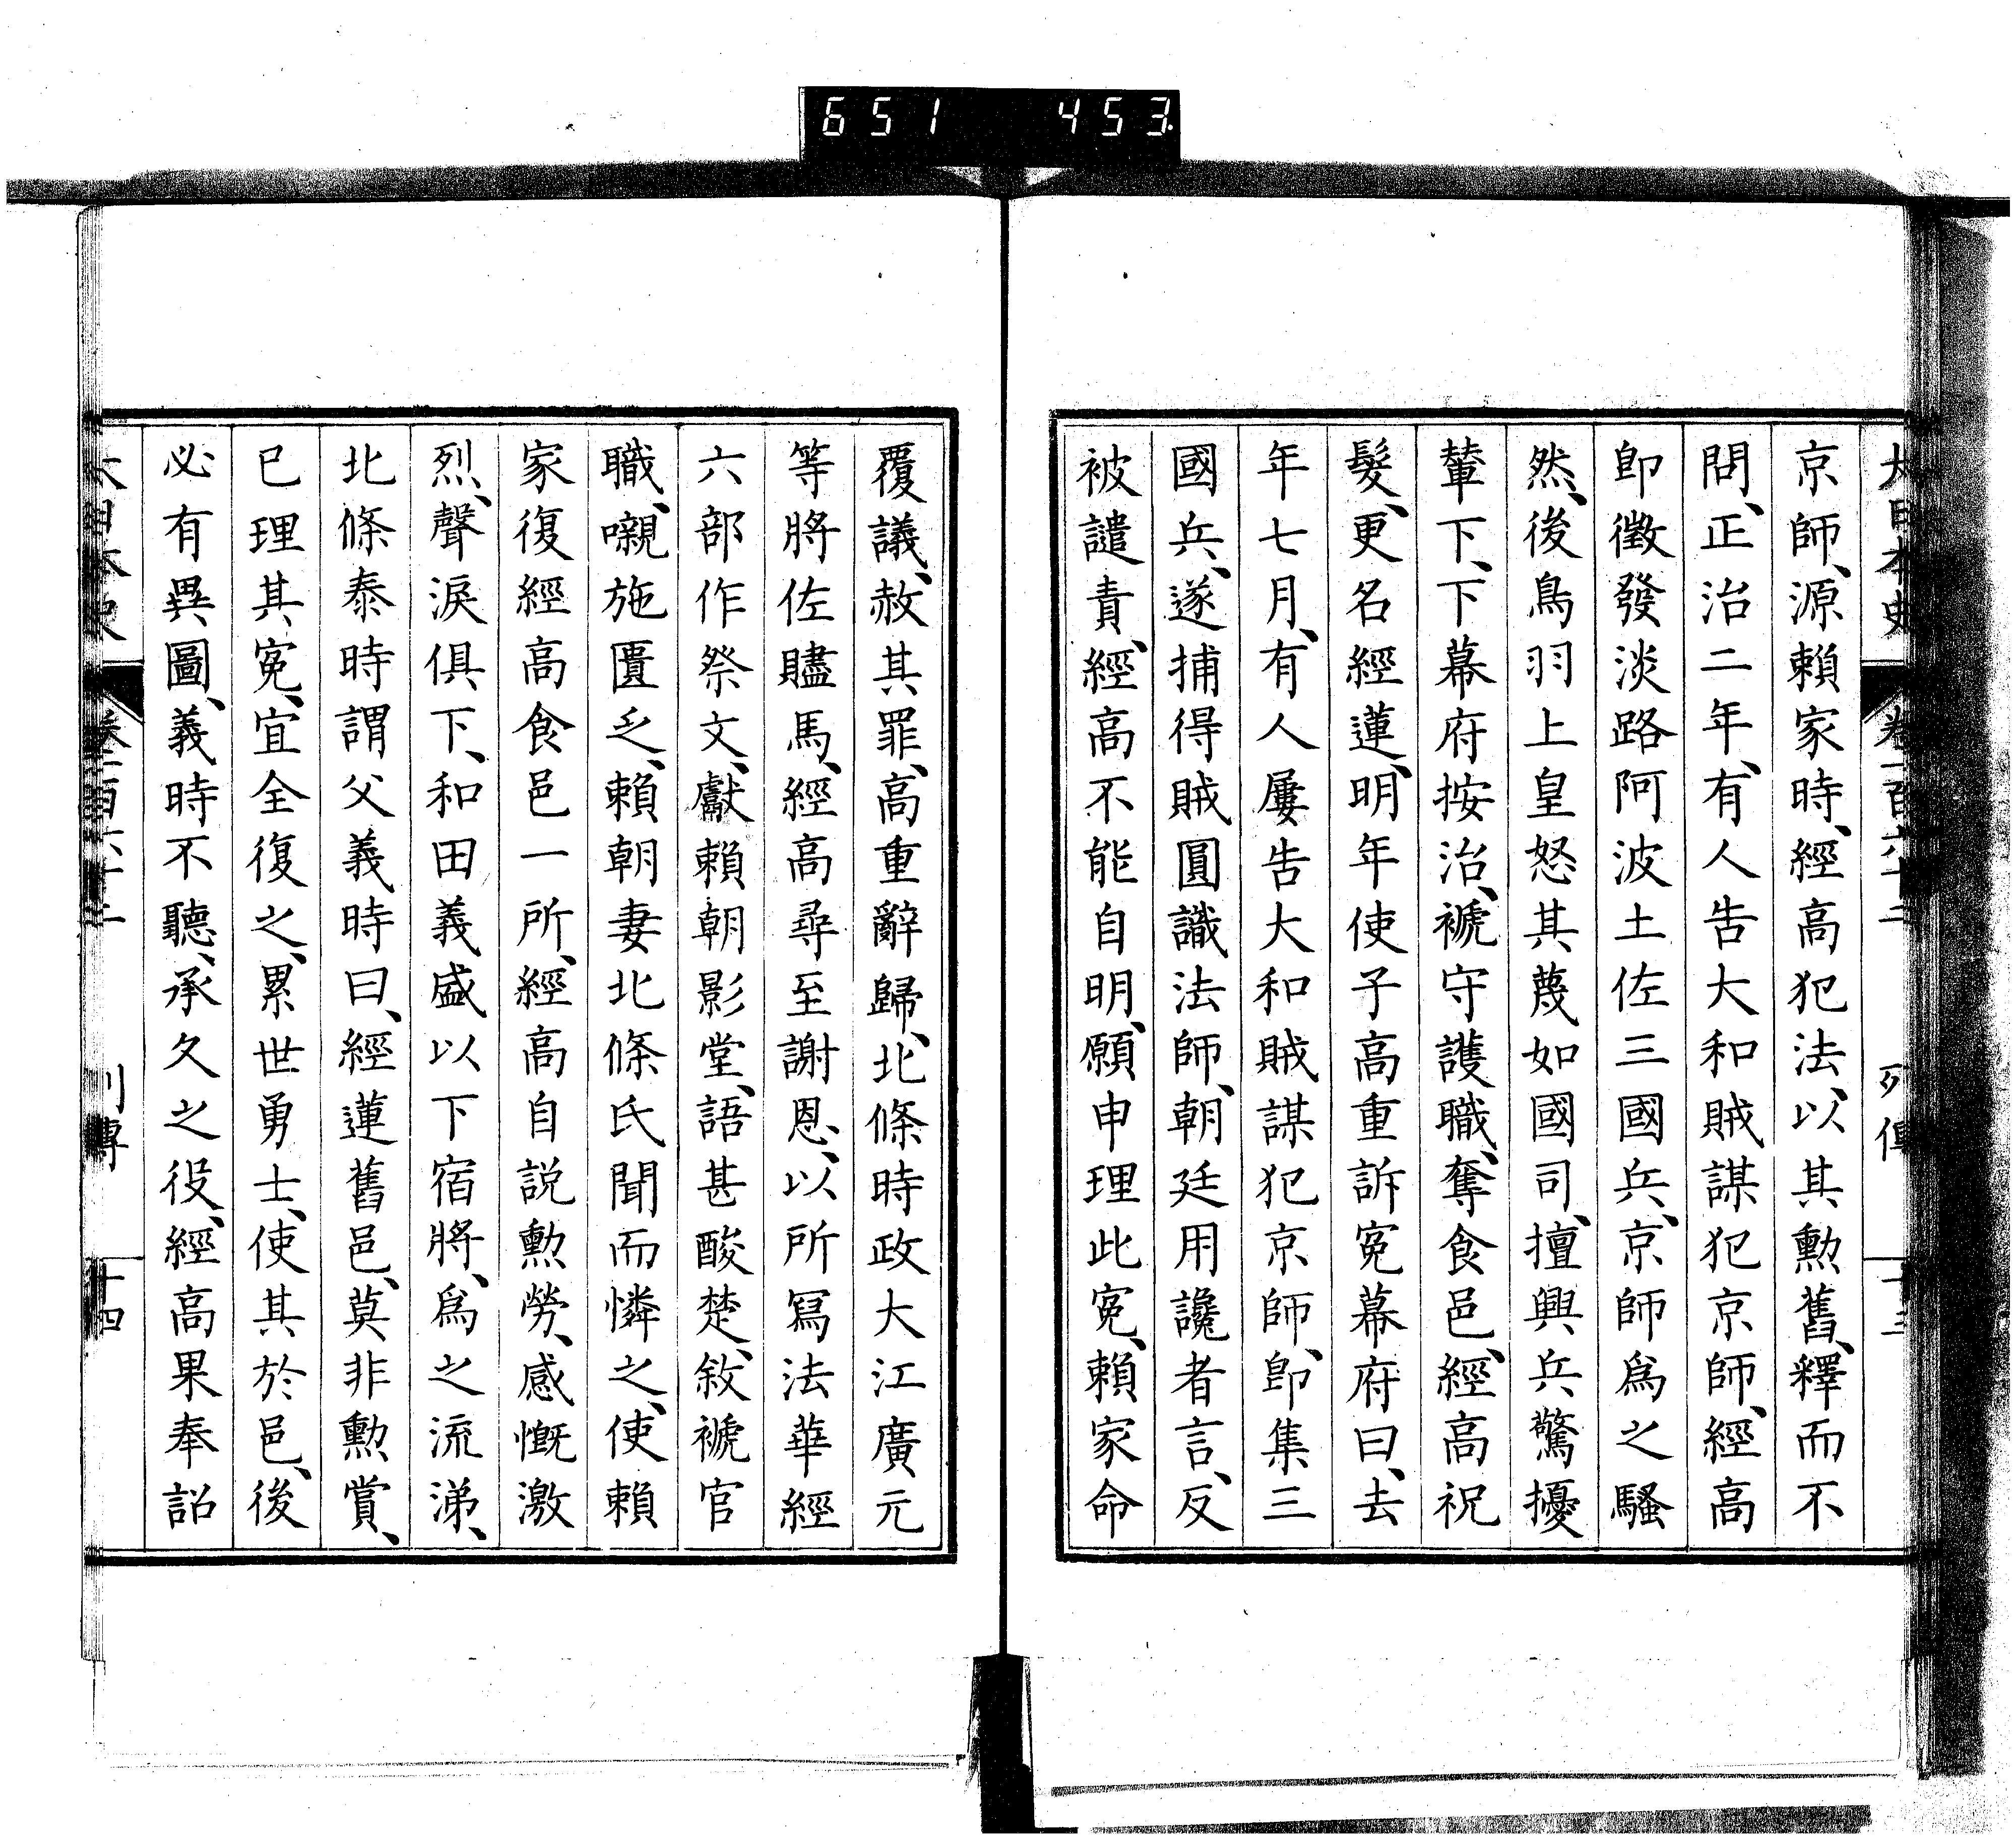 651 453
大日本史 卷一百六十二 列傳 十三
京師、源賴家時、經高犯法、以其勳舊、釋而不
問、正治二年、有人告大和賊謀犯京師、經高
卽徵發淡路阿波土佐三國兵、京師爲之騷
然、後鳥羽上皇怒其蔑如國司、擅興兵驚擾
輦下、下幕府按治、褫守護職、奪食邑、經高祝
髮、更名經蓮、明年使子高重訴冤幕府曰、去
年七月、有人屢告大和賊謀犯京師、卽集三
國兵、遂捕得賊圓識法師、朝廷用讒者言、反
被譴責、經高不能自明、願申理此冤、賴家命
覆議、赦其罪、高重辭歸、北條時政大江廣元
等將佐贐馬、經高尋至謝恩、以所寫法華經
六部作祭文、獻賴朝影堂、語甚酸楚、敘褫官
職、嚫施匱乏、賴朝妻北條氏聞而憐之、使賴
家復經高食邑一所、經高自說勳勞、感慨激
烈、聲淚俱下、和田義盛以下宿將、爲之流涕、
北條泰時謂父義時曰、經蓮舊邑、莫非勳賞、
已理其冤、宜全復之、累世勇士、使其於邑、後
必有異圖、義時不聽、承久之役、經高果奉詔
大日本史 卷一百六十二 列傳 十四